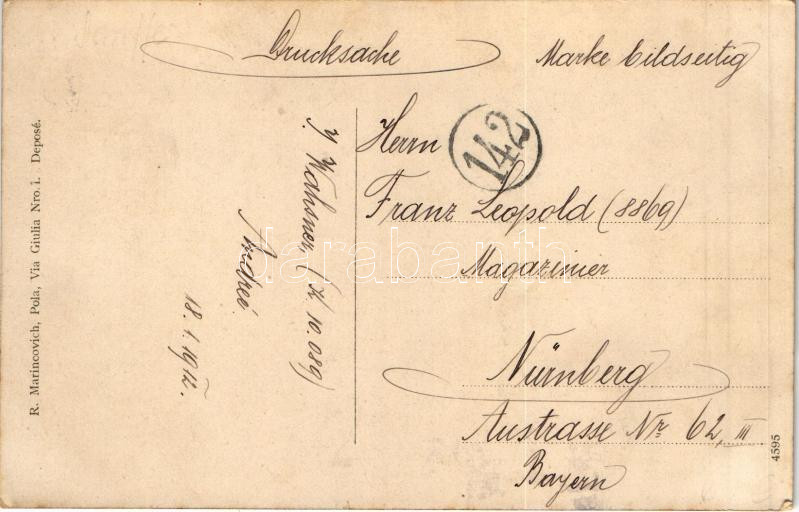 Drucksache Marke bildseitig
Herrn
142
Franz Leopold (8869)
Magazinier
Nürnberg
Austrasse Nr 62, III
Bayern
(K. 10.089)
Andreé
18.1.1912.
R. Marincovich, Pola, Via Giulia Nro. 1. Deposé.
4595
darabanth